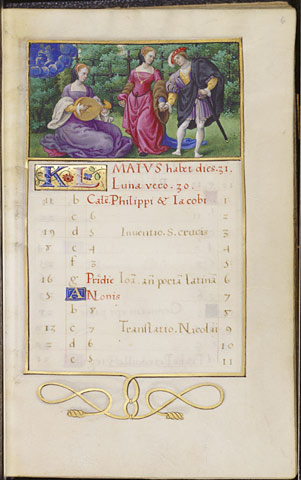 KL MAIUS habet dies. 31.
Luna vero. 30.
11 b Cale Philippi & Iacobi 1
c 2
19 d Inventio. S. crucis 3
8 e 4
f 5
16 g Pridie Ioā. añ portā latinā 6
5 A Nonis 7
b 8
c Translatio. Nicolai 9
2 d 10
e 11